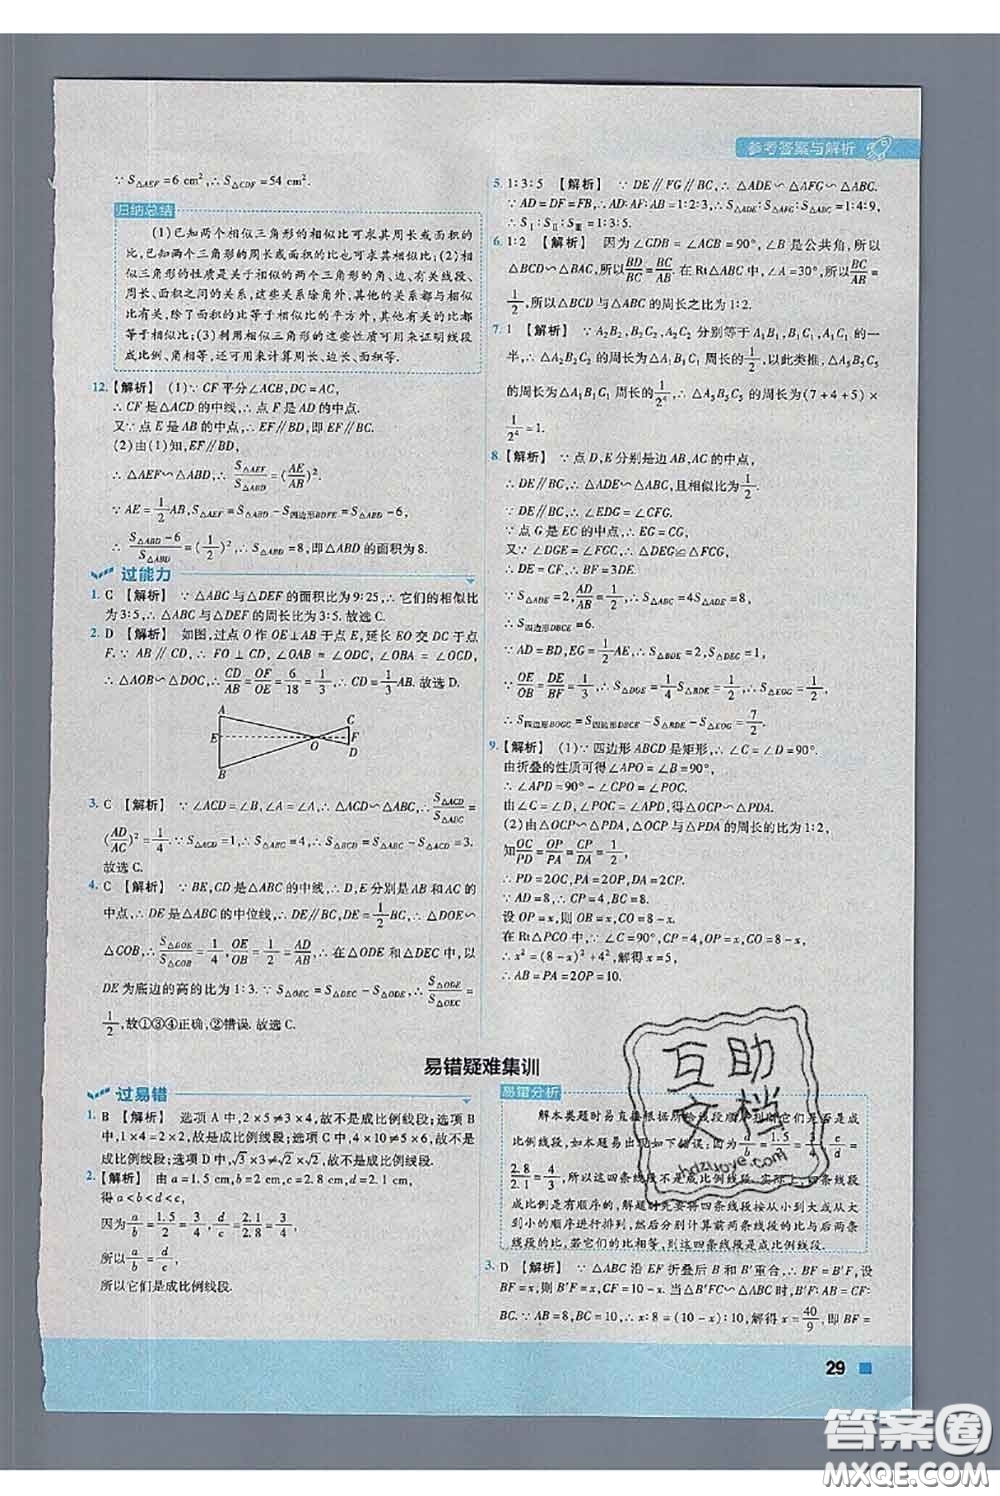 参考答案与解析
∵S△AEF=6 cm²,∴S△CDF=54 cm².
归纳总结
(1)已知两个相似三角形的相似比可求其周长或面积的
比,也可已知两个三角形的周长或面积的比求相似比;(2)相
似三角形的性质是关于相似的两个三角形的角、边、有关线段、
周长、面积之间的关系,这些关系除角外,其他的关系都与相似
比有关,除了面积的比等于相似比的平方外,其他关系的比都
等于相似比;(3)利用相似三角形的这些性质可用来证明线段
成比例、角相等,还可用来计算周长、边长、面积等.
12.【解析】 (1)∵CF平分∠ACB,DC=AC,
∴CF是△ACD的中线,∴点F是AD的中点.
又∵点E是AB的中点,∴EF∥BD,即EF∥BC.
(2)由(1)知,EF∥BD,
∴△AEF∽△ABD,∴S△AEF/S△ABD=(AE/AB)².
∵AE=1/2AB,S△AEF=S△ABD-S四边形BDFE=S△ABD-6,
∴(S△ABD-6)/S△ABD=(1/2)²,∴S△ABD=8,即△ABD的面积为8.
过能力
1. C 【解析】 ∵△ABC与△DEF的面积比为9:25,∴它们的相似比
为3:5,∴△ABC与△DEF的周长比为3:5.故选C.
2. D 【解析】 如图,过点O作OE⊥AB于点E,延长EO交DC于点
F.∵AB∥CD,∴FO⊥CD,∠OAB=∠ODC,∠OBA=∠OCD,
∴△AOB∽△DOC,∴CD/AB=OF/OE=6/18=1/3,∴CD=1/3AB.故选D.
A
C
E
O
F
D
B
3. C 【解析】 ∵∠ACD=∠B,∠A=∠A,∴△ACD∽△ABC,∴S△ACD/S△ABC=
(AD/AC)²=1/4.∵S△ACD=1,∴S△ABC=4,∴S△BCD=S△ABC-S△ACD=3.
故选C.
4. C 【解析】 ∵BE,CD是△ABC的中线,∴D,E分别是AB和AC的
中点,∴DE是△ABC的中位线,∴DE∥BC,DE=1/2BC,∴△DOE∽
△COB,∴S△DOE/S△COB=1/4,OE/OB=1/2=AD/AB,∴在△ODE和△DEC中,以
DE为底边的高的比为1:3.∵S△OEC=S△DEC-S△ODE,∴S△ODE/S△OEC=
1/2,故①③④正确,②错误.故选C.
5. 1:3:5 【解析】 ∵DE∥FG∥BC,∴△ADE∽△AFG∽△ABC.
∵AD=DF=FB,∴AD:AF:AB=1:2:3,∴S△ADE:S△AFG:S△ABC=1:4:9,
∴SⅠ:SⅡ:SⅢ=1:3:5.
6. 1:2 【解析】 因为∠CDB=∠ACB=90°,∠B是公共角,所以
△BCD∽△BAC,所以BD/BC=BC/AB.在Rt△ABC中,∠A=30°,所以BC/AB=
1/2,所以△BCD与△BAC的周长之比为1:2.
7. 1 【解析】 ∵A₂B₂,B₂C₂,A₂C₂分别等于A₁B₁,B₁C₁,A₁C₁的一
半,∴△A₂B₂C₂的周长为△A₁B₁C₁周长的1/2,以此类推,△A₅B₅C₅
的周长为△A₁B₁C₁周长的1/2⁴,∴△A₅B₅C₅的周长为(7+4+5)×
1/2⁴=1.
8.【解析】 ∵点D,E分别是边AB,AC的中点,
∴DE∥BC,∴△ADE∽△ABC,且相似比为1/2.
∵DE∥BC,∴∠EDG=∠CFG.
∵点G是EC的中点,∴EG=CG,
又∵∠DGE=∠FGC,∴△DEG≌△FCG,
∴DE=CF,∴BF=3DE.
∵S△ADE=2,AD/AB=1/2,∴S△ABC=4S△ADE=8,
∴S四边形DBCE=6.
∵AD=BD,EG=1/2AE,∴S△BDE=2,S△DEG=1.
∵OE/OB=DE/BF=1/3,∴S△ODE=1/4S△BDE=1/2,∴S△EOG=1/2,
∴S四边形BOGC=S四边形DBCE-S△BDE-S△EOG=7/2.
9.【解析】 (1)∵四边形ABCD是矩形,∴∠C=∠D=90°.
由折叠的性质可得∠APO=∠B=90°,
∴∠APD=90°-∠CPO=∠POC.
由∠C=∠D,∠POC=∠APD,得△OCP∽△PDA.
(2)由△OCP∽△PDA,△OCP与△PDA的周长的比为1:2,
知OC/PD=OP/PA=CP/DA=1/2,
∴PD=2OC,PA=2OP,DA=2CP.
∵AD=8,∴CP=4,BC=8.
设OP=x,则OB=x,CO=8-x.
在Rt△PCO中,∵∠C=90°,CP=4,OP=x,CO=8-x,
∴x²=(8-x)²+4²,解得x=5,
∴AB=PA=2OP=10.
易错疑难集训
过易错
1. B 【解析】 选项A中,2×5≠3×4,故不是成比例线段;选项B
中,1×4=2×2,故是成比例线段;选项C中,4×10≠5×6,故不是
成比例线段;选项D中,√3×3≠√2×2,故不是成比例线段.
2.【解析】 由a=1.5 cm,b=2 cm,c=2.8 cm,d=2.1 cm,
得a<b<d<c,
因为a/b=1.5/2=3/4,d/c=2.1/2.8=3/4,
所以a/b=d/c,
所以它们是成比例线段.
易错分析
解本类题时易直接根据所给线段顺序判断它们是否成
比例线段,如本题易出现如下错误:因为a/b=1.5/2=3/4,c/d=
2.8/2.1=4/3,所以这四条线段不是成比例线段.实际上,四条线段
成比例是有顺序的,解题时先要将四条线段按从小到大或从
大到小的顺序进行排列,然后分别计算前两条线段的比与后两条
线段的比,若它们的比相等,则这四条线段是成比例线段.
3. D 【解析】 ∵△ABC沿EF折叠后B和B′重合,∴BF=B′F,设
BF=x,则B′F=x,CF=10-x.当△B′FC∽△ABC,∴B′F:AB=CF:
BC.∵AB=8,BC=10,∴x:8=(10-x):10,解得x=40/9,即BF=
互助
文档
hdzuoye.com
29
答案圈
MXQE.COM